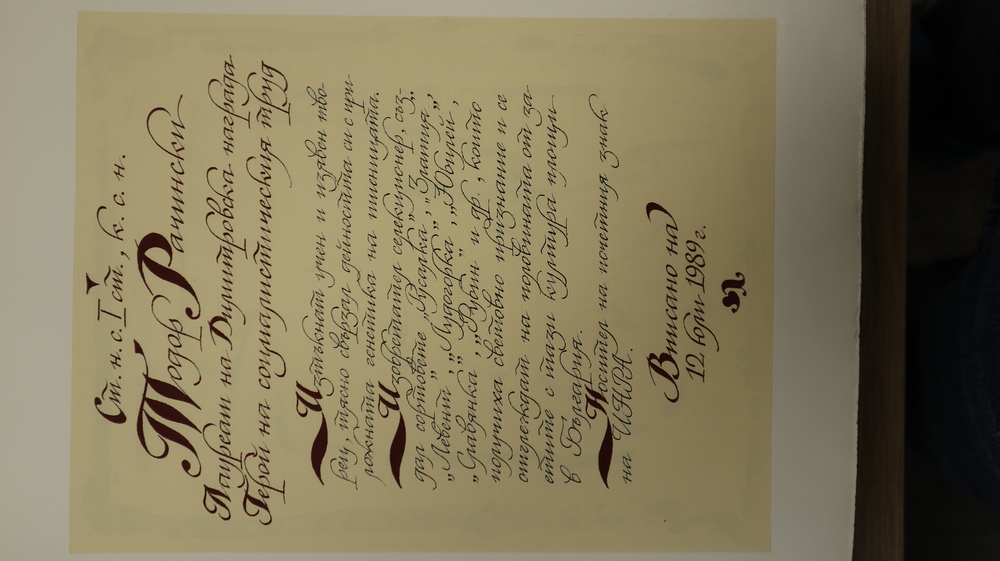 Ст. н. с. I ст., к. с. н.
Тодор Рачински
Лауреат на Димитровска награда
Герой на социалистическия труд
Изтъкнат учен и изявен тво-
рец, тясно свързал дейността си с при-
ложната генетика на пшеницата.
Изобретател селекционер, съз-
дал сортовете „Русалка“, „Златия“,
„Левент“, „Лудогорка“, „Юбилей“,
„Славянка“, „Плиска“ и др., които
получиха световно признание и се
отглеждат на половината от за-
етите с тази култура площи
в България.
Носител на почетния знак
на ИНРА.
Вписано на
12 юли 1989 г.